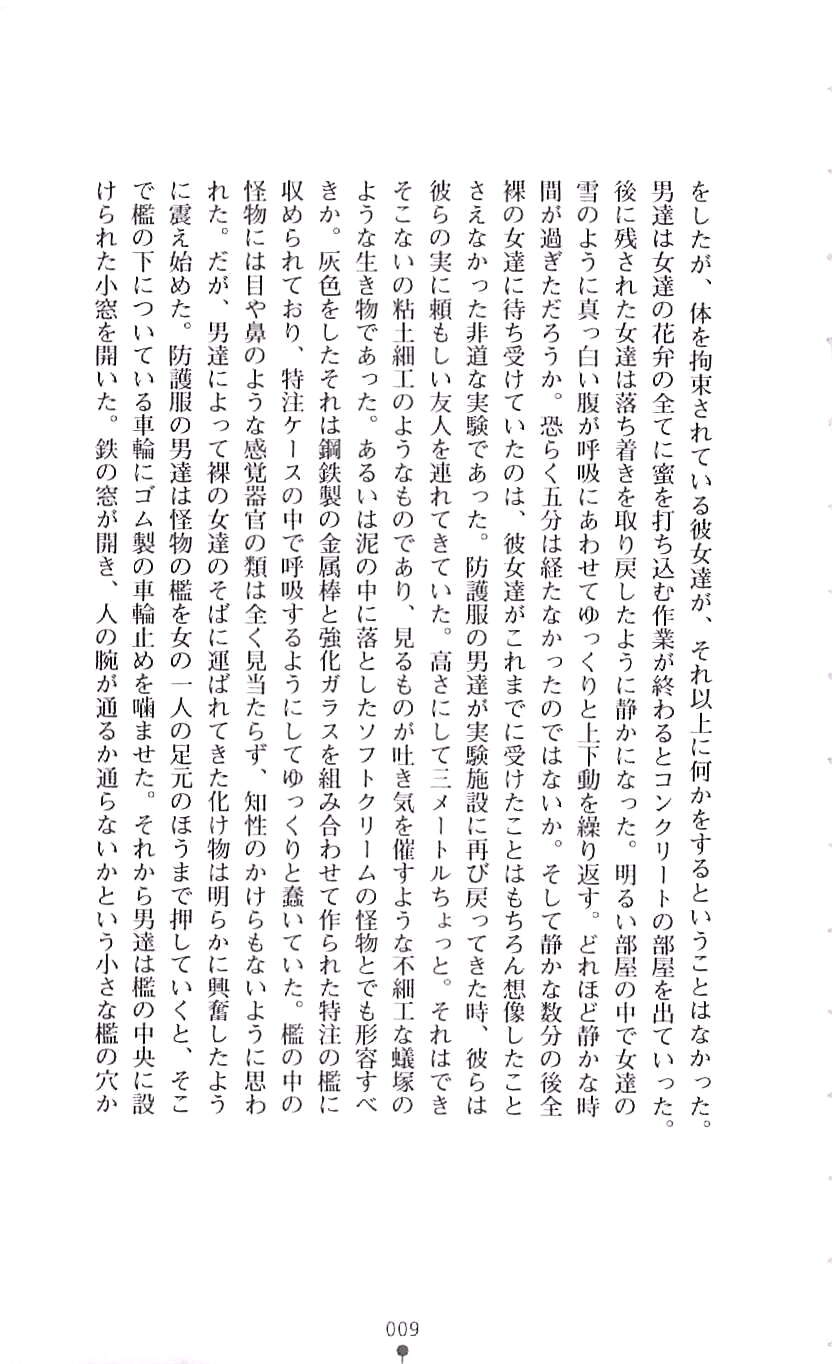 をしたが、体を拘束されている彼女達が、それ以上に何かをするということはなかった。
男達は女達の花弁の全てに蜜を打ち込む作業が終わるとコンクリートの部屋を出ていった。
後に残された女達は落ち着きを取り戻したように静かになった。明るい部屋の中で女達の
雪のように真っ白い腹が呼吸にあわせてゆっくりと上下動を繰り返す。どれほど静かな時
間が過ぎただろうか。恐らく五分は経たなかったのではないか。そして静かな数分の後全
裸の女達に待ち受けていたのは、彼女達がこれまでに受けたことはもちろん想像したこと
さえなかった非道な実験であった。防護服の男達が実験施設に再び戻ってきた時、彼らは
彼らの実に頼もしい友人を連れてきていた。高さにして三メートルちょっと。それはでき
そこないの粘土細工のようなものであり、見るものが吐き気を催すような不細工な蟻塚の
ような生き物であった。あるいは泥の中に落としたソフトクリームの怪物とでも形容すべ
きか。灰色をしたそれは鋼鉄製の金属棒と強化ガラスを組み合わせて作られた特注の檻に
収められており、特注ケースの中で呼吸するようにしてゆっくりと蠢いていた。檻の中の
怪物には目や鼻のような感覚器官の類は全く見当たらず、知性のかけらもないように思わ
れた。だが、男達によって裸の女達のそばに運ばれてきた化け物は明らかに興奮したよう
に震え始めた。防護服の男達は怪物の檻を女の一人の足元のほうまで押していくと、そこ
で檻の下についている車輪にゴム製の車輪止めを噛ませた。それから男達は檻の中央に設
けられた小窓を開いた。鉄の窓が開き、人の腕が通るか通らないかという小さな檻の穴か
009